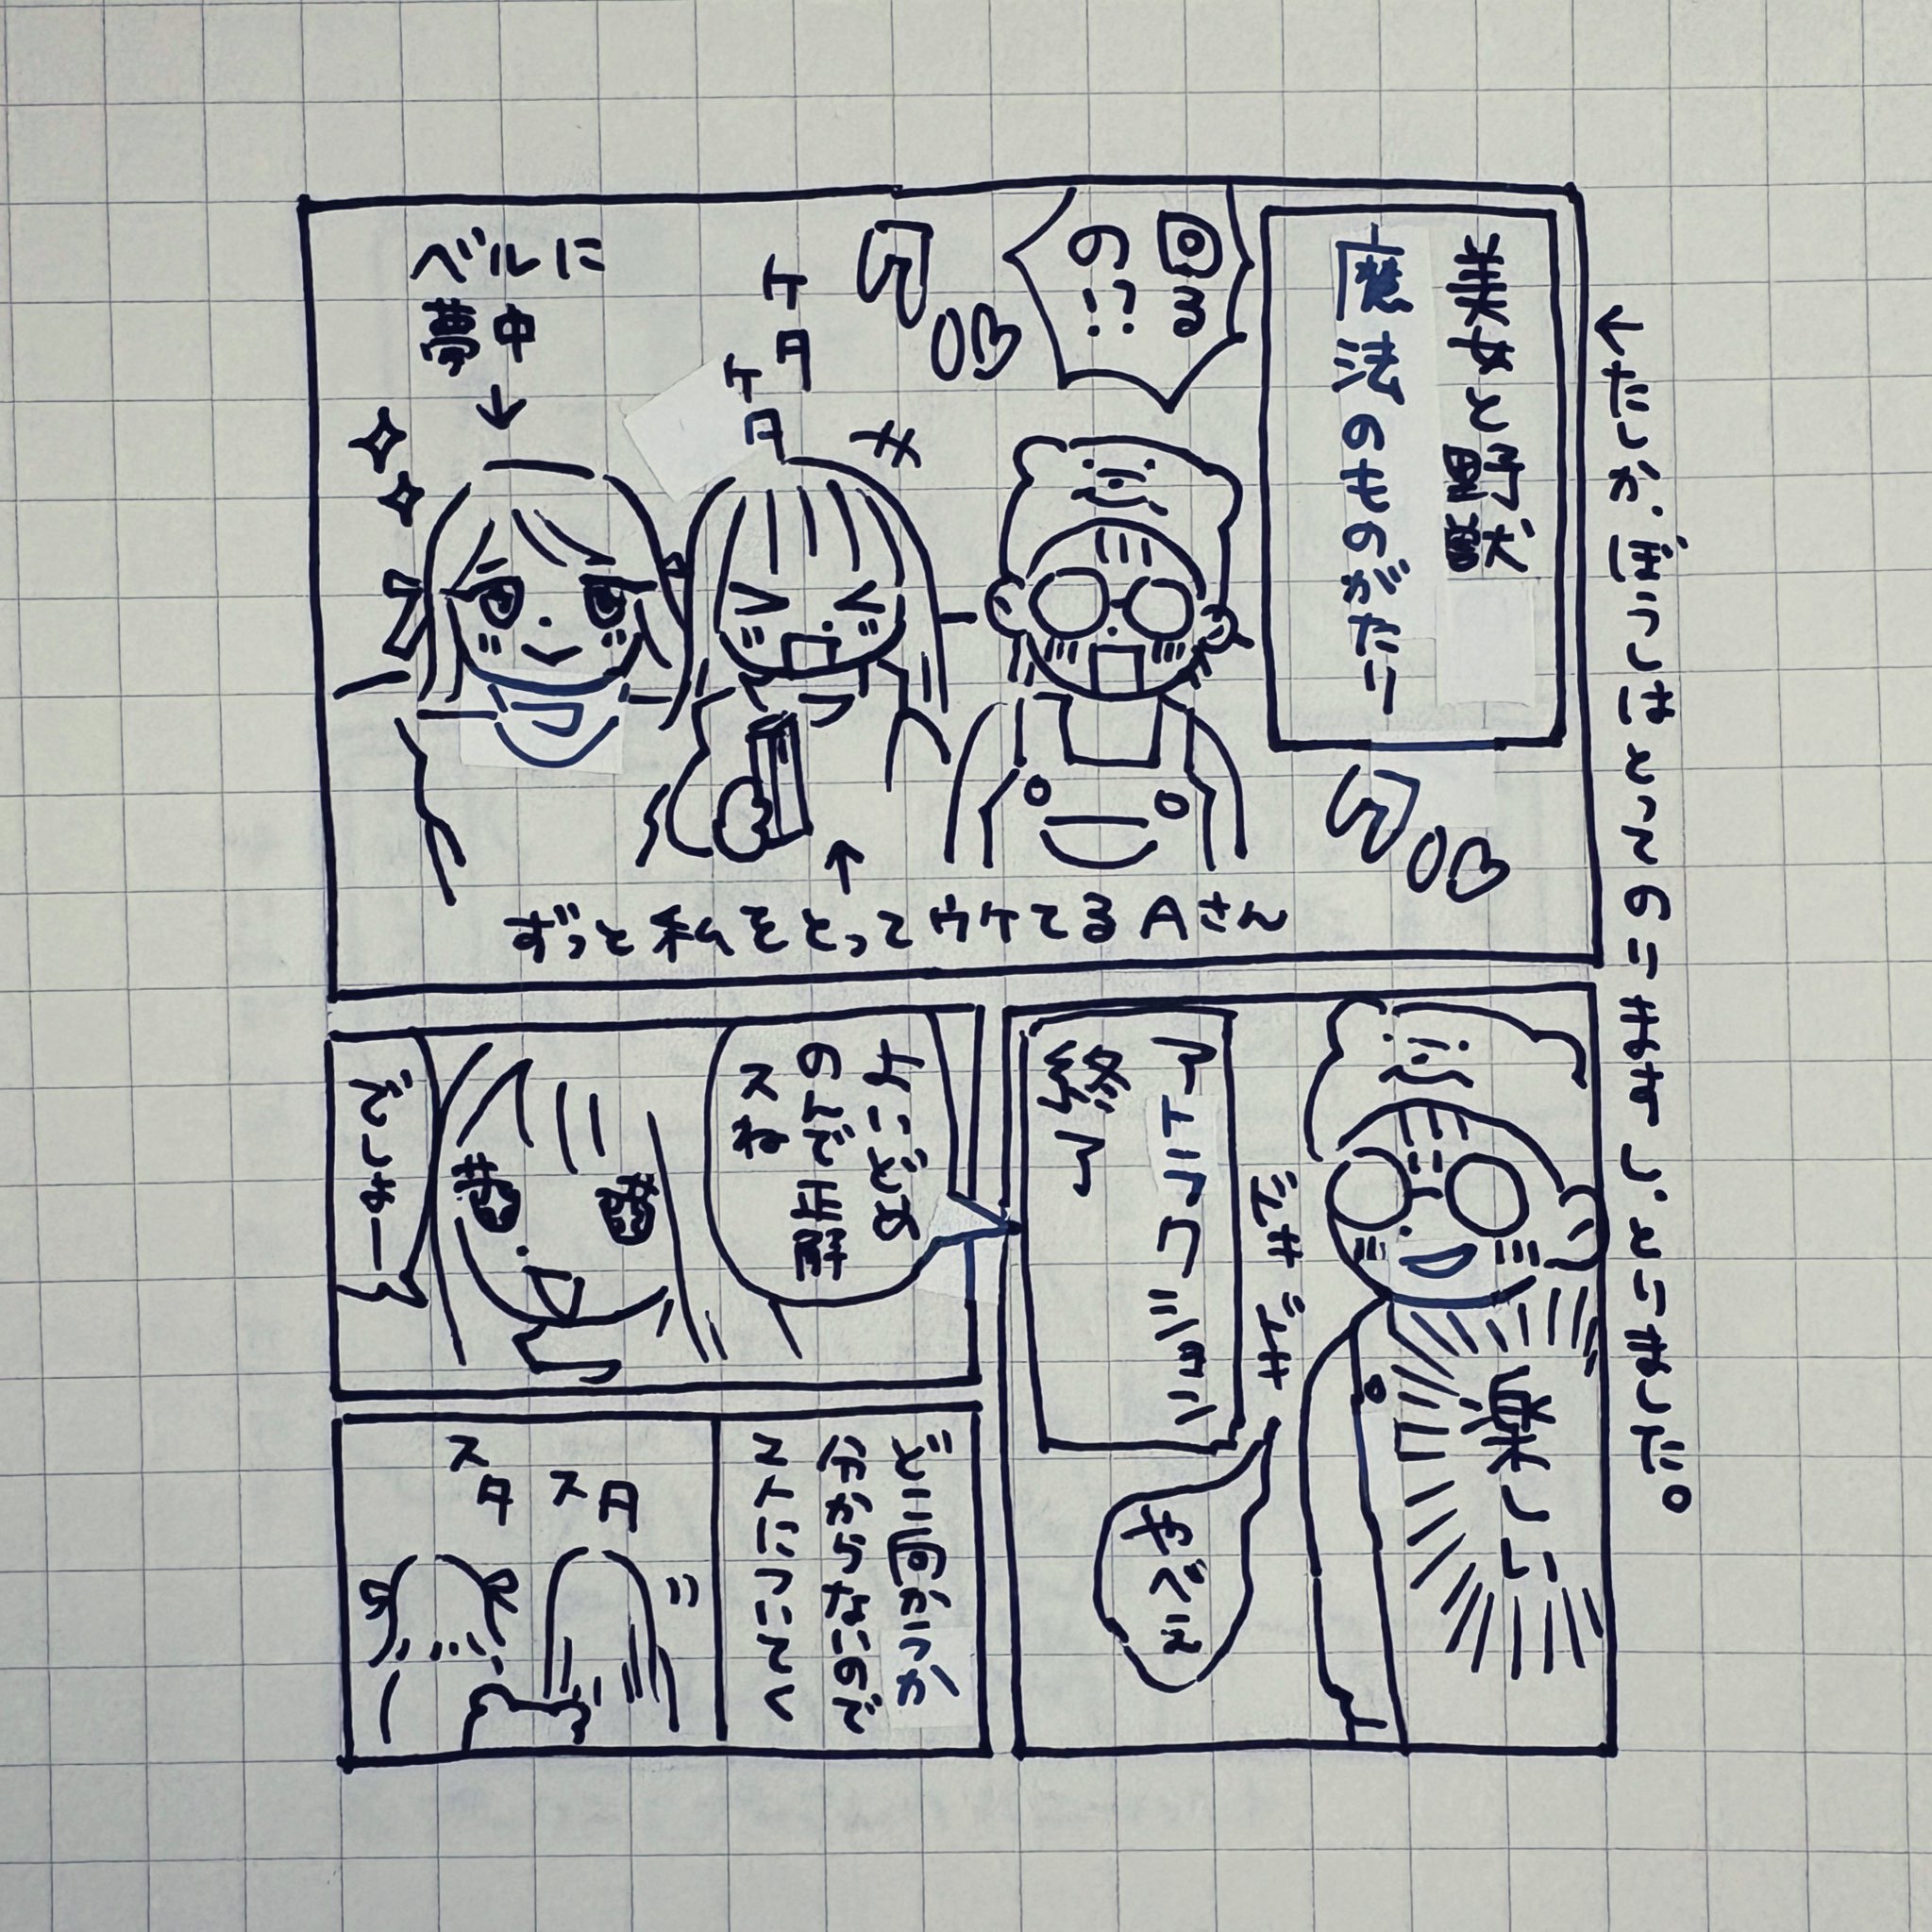 ←たしか、ぼうしはとってのりますし、とりました。
美女と野獣
魔法のものがたり
回る
の!?
ケタ
ケタ
ベルに
夢中
↓
↑
ずっと私をとってウケてるAさん
楽しい
ドキドキ
アトラクション
終了
やべぇ
よいどめ
のんで正解
スね
でしょー
どこ向かうか
分からないので
2人についてく
スタ
スタ